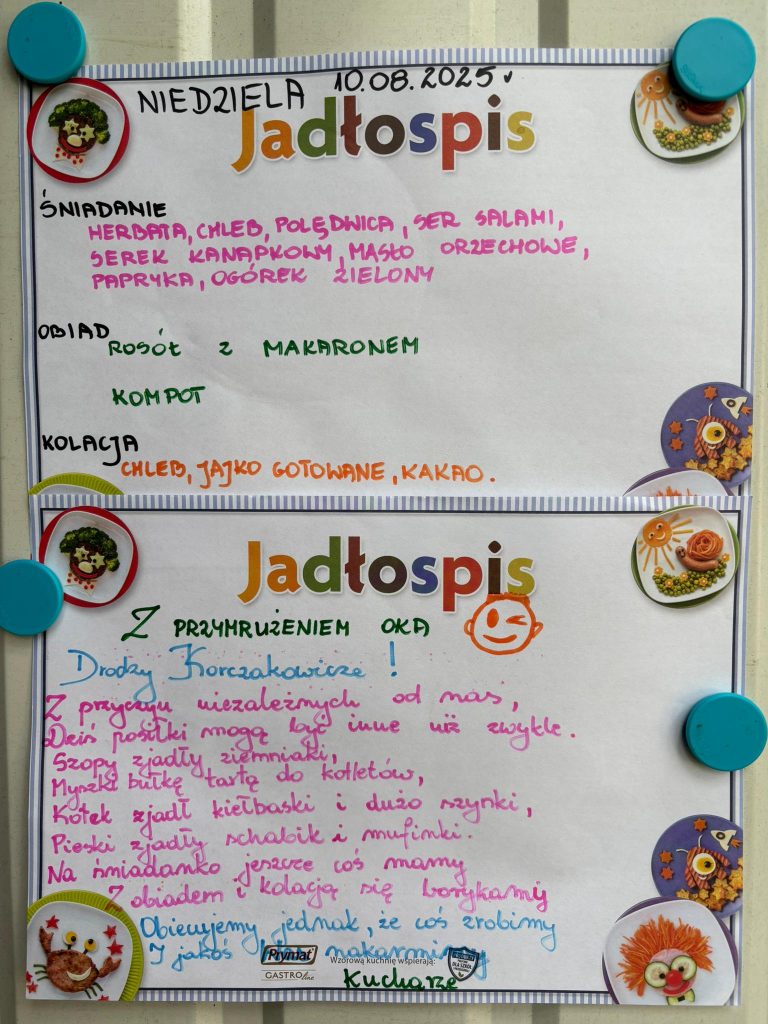 NIEDZIELA 10.08.2025
Jadłospis
ŚNIADANIE
HERBATA, CHLEB, POLĘDWICA, SER SALAMI,
SEREK KANAPKOWY, MASŁO ORZECHOWE,
PAPRYKA, OGÓREK ZIELONY
OBIAD
ROSÓŁ Z MAKARONEM
KOMPOT
KOLACJA
CHLEB, JAJKO GOTOWANE, KAKAO.
Jadłospis
Z PRZYMRUŻENIEM OKA
Drodzy Korczakowicze!
Z przyczyn niezależnych od nas,
Dziś posiłki mogą być inne niż zwykle.
Szopy zjadły ziemniaki,
Myszki bułkę tartą do kotletów,
Kotek zjadł kiełbaski i dużo szynki,
Pieski zjadły schabik i mufinki.
Na śniadanko jeszcze coś mamy
Z obiadem i kolacją się borykamy
Obiecujemy jednak, że coś zrobimy
I jakoś nakarmimy
Prymat
GASTROline
Wzorową kuchnię wspierają:
Kucharze